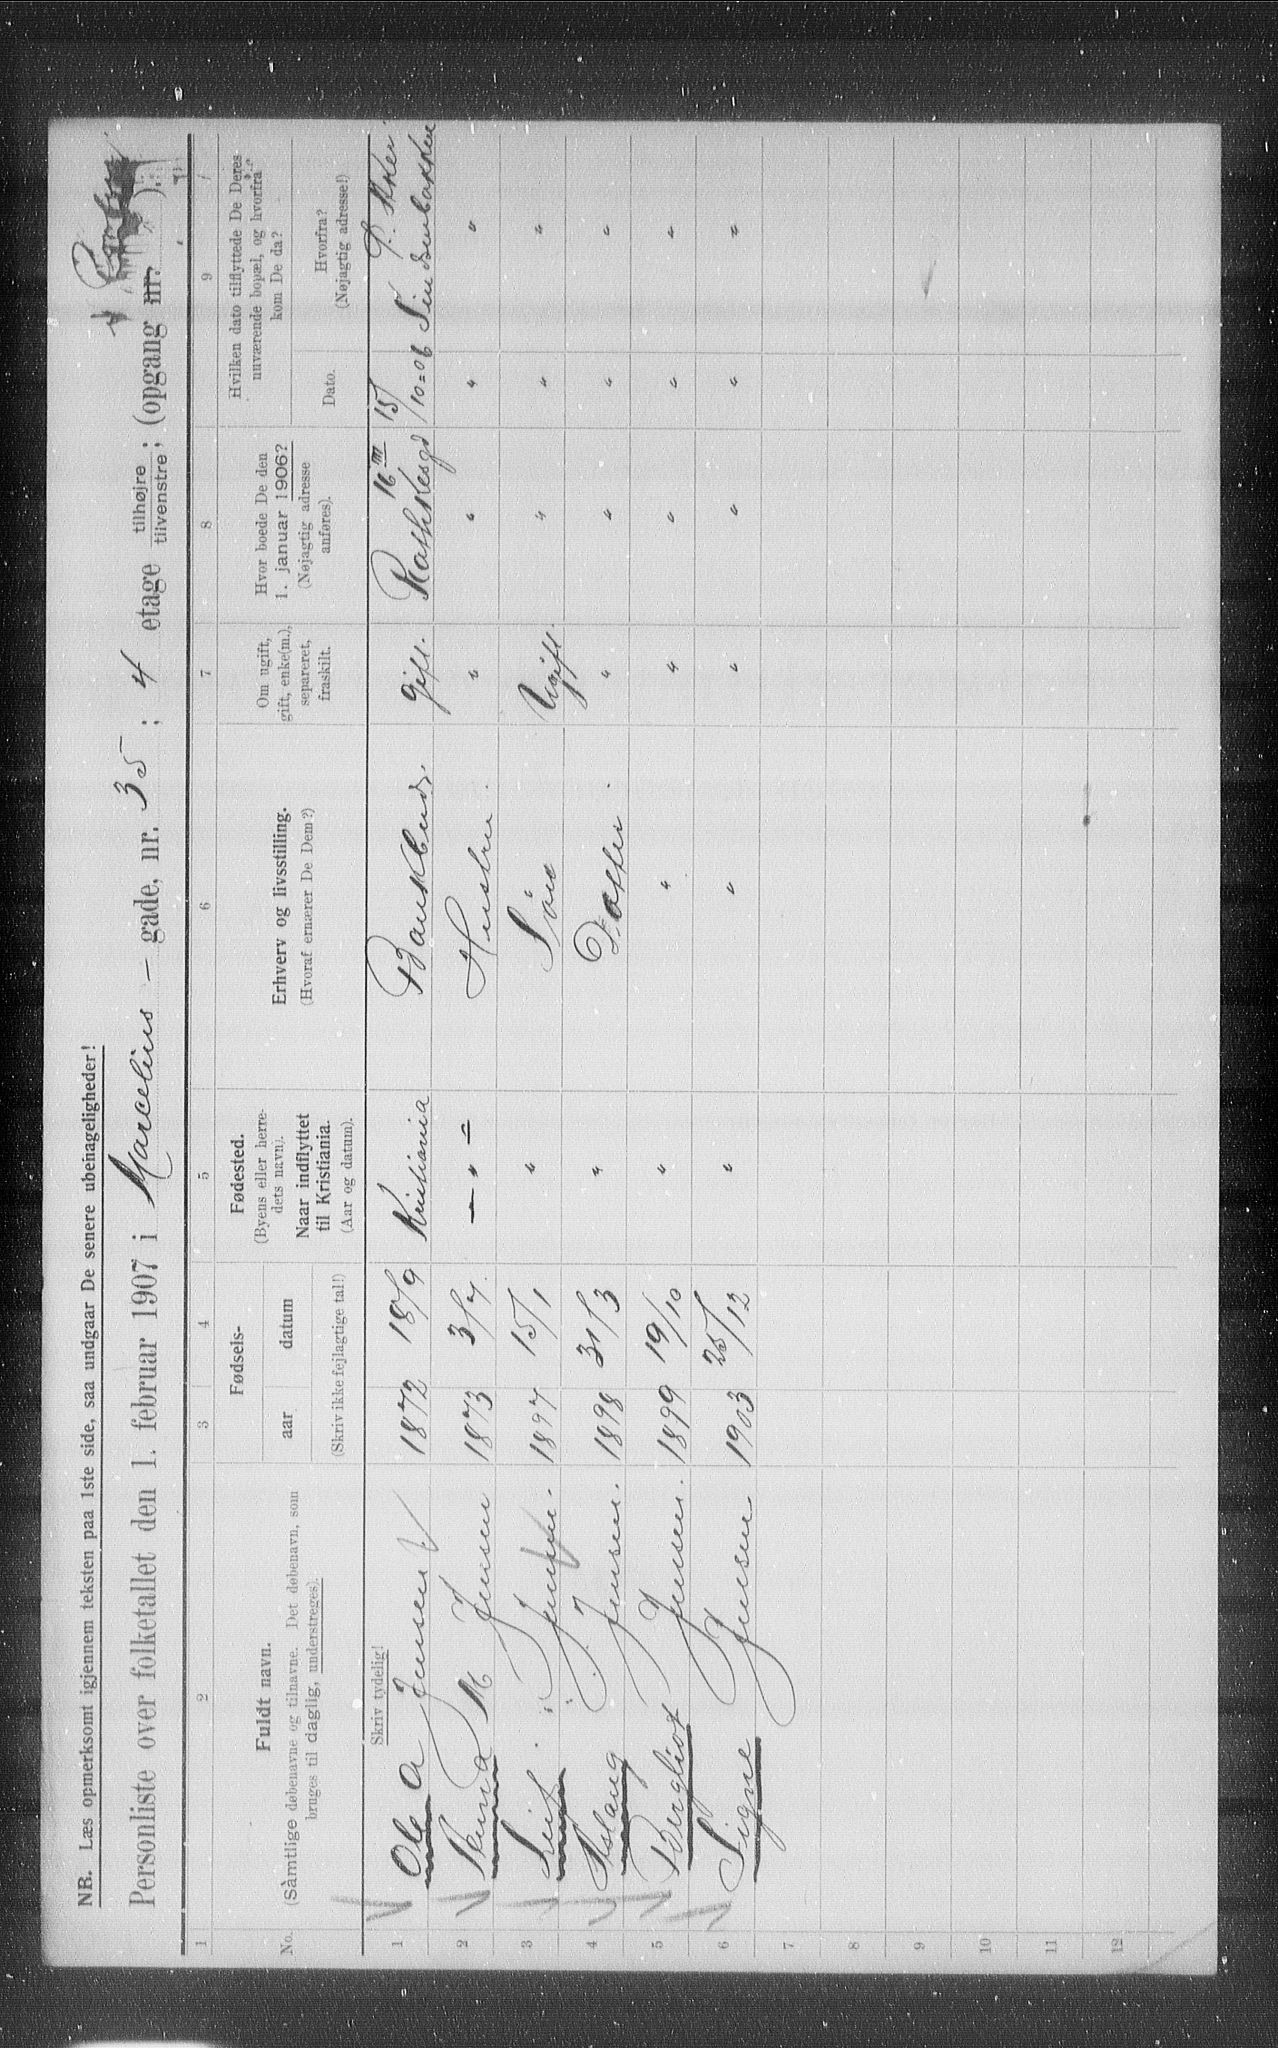 NB. Læs opmerksomt igjennem teksten paa 1ste side, saa undgaar De senere ubehageligheder!
Personliste over folketallet den 1. februar 1907 i Marcelius - gade, nr. 35 ; 4 etage tilhøjre / tilvenstre; (opgang nr. ).
1 2 3 4 5 6 7 8 9
No.
Fuldt navn.
(Samtlige døbenavne og tilnavne. Det døbenavn, som bruges til daglig, understreges).
Fødsels-
aar datum
(Skriv ikke fejlagtige tal!)
Fødested.
(Byens eller herredets navn).
Naar indflyttet til Kristiania.
(Aar og datum).
Erhverv og livsstilling.
(Hvoraf ernærer De Dem?)
Om ugift, gift, enke(m.), separeret, fraskilt.
Hvor boede De den 1. januar 1906?
(Nøjagtig adresse anføres).
Hvilken dato tilflyttede De Deres nuværende bopæl, og hvorfra kom De da?
Dato. Hvorfra?
(Nøjagtig adresse!)
Skriv tydelig!
1 Ole A Jensen 1872 18/9 Kristiania Bankbud. gift. Rathkesgd 16 III 15/10=06 Ø. Aker
2 M Jensen 1873 3/7 — " — Hustru. " " " "
3 Leif. Jensen. 1897 15/1 " Søn Ugift. " " "
4 Aslaug J. Jensen. 1898 31/3 " Datter. " " " "
5 Bergliot Jensen. 1899 19/10 " " " " " "
6 Signe Jensen 1903 25/12 " " " " " "
7
8
9
10
11
12